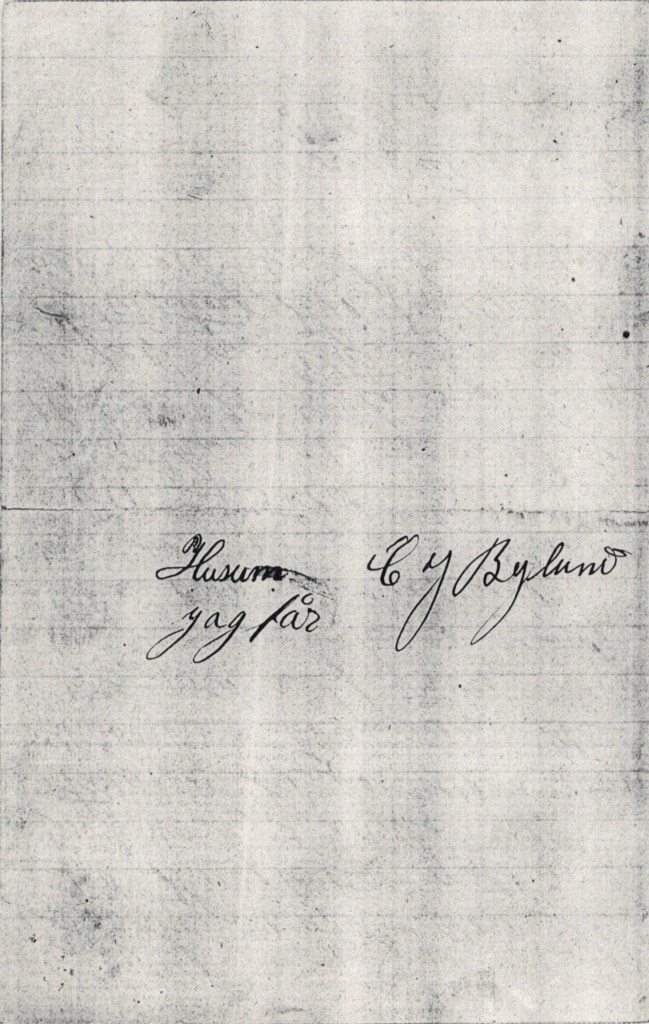 Husum C J Bylund
jag får